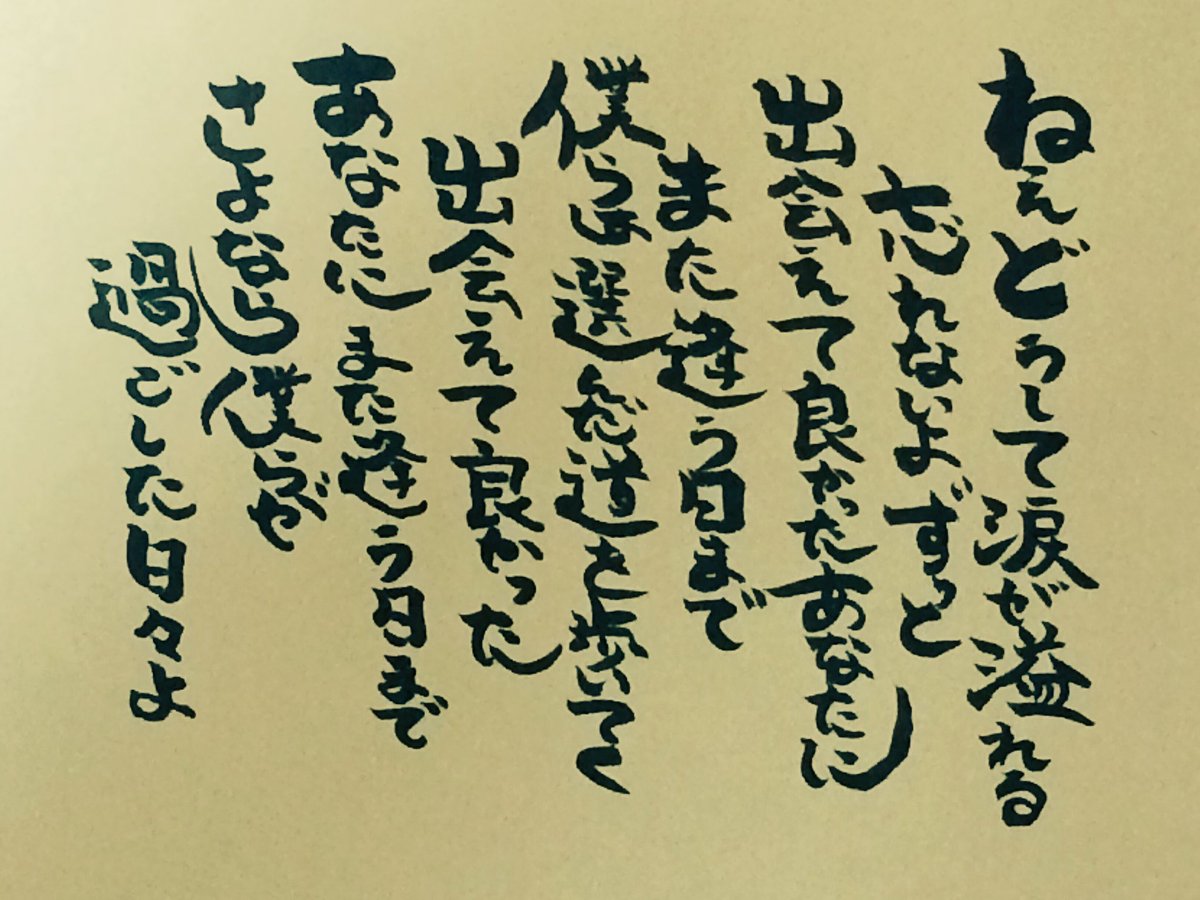 ねぇどうして涙が溢れる
忘れないよずっと
出会えて良かったあなたに
また逢う日まで
僕らは選んだ道を歩いてく
出会えて良かった
あなたにまた逢う日まで
さよなら僕らが
過ごした日々よ